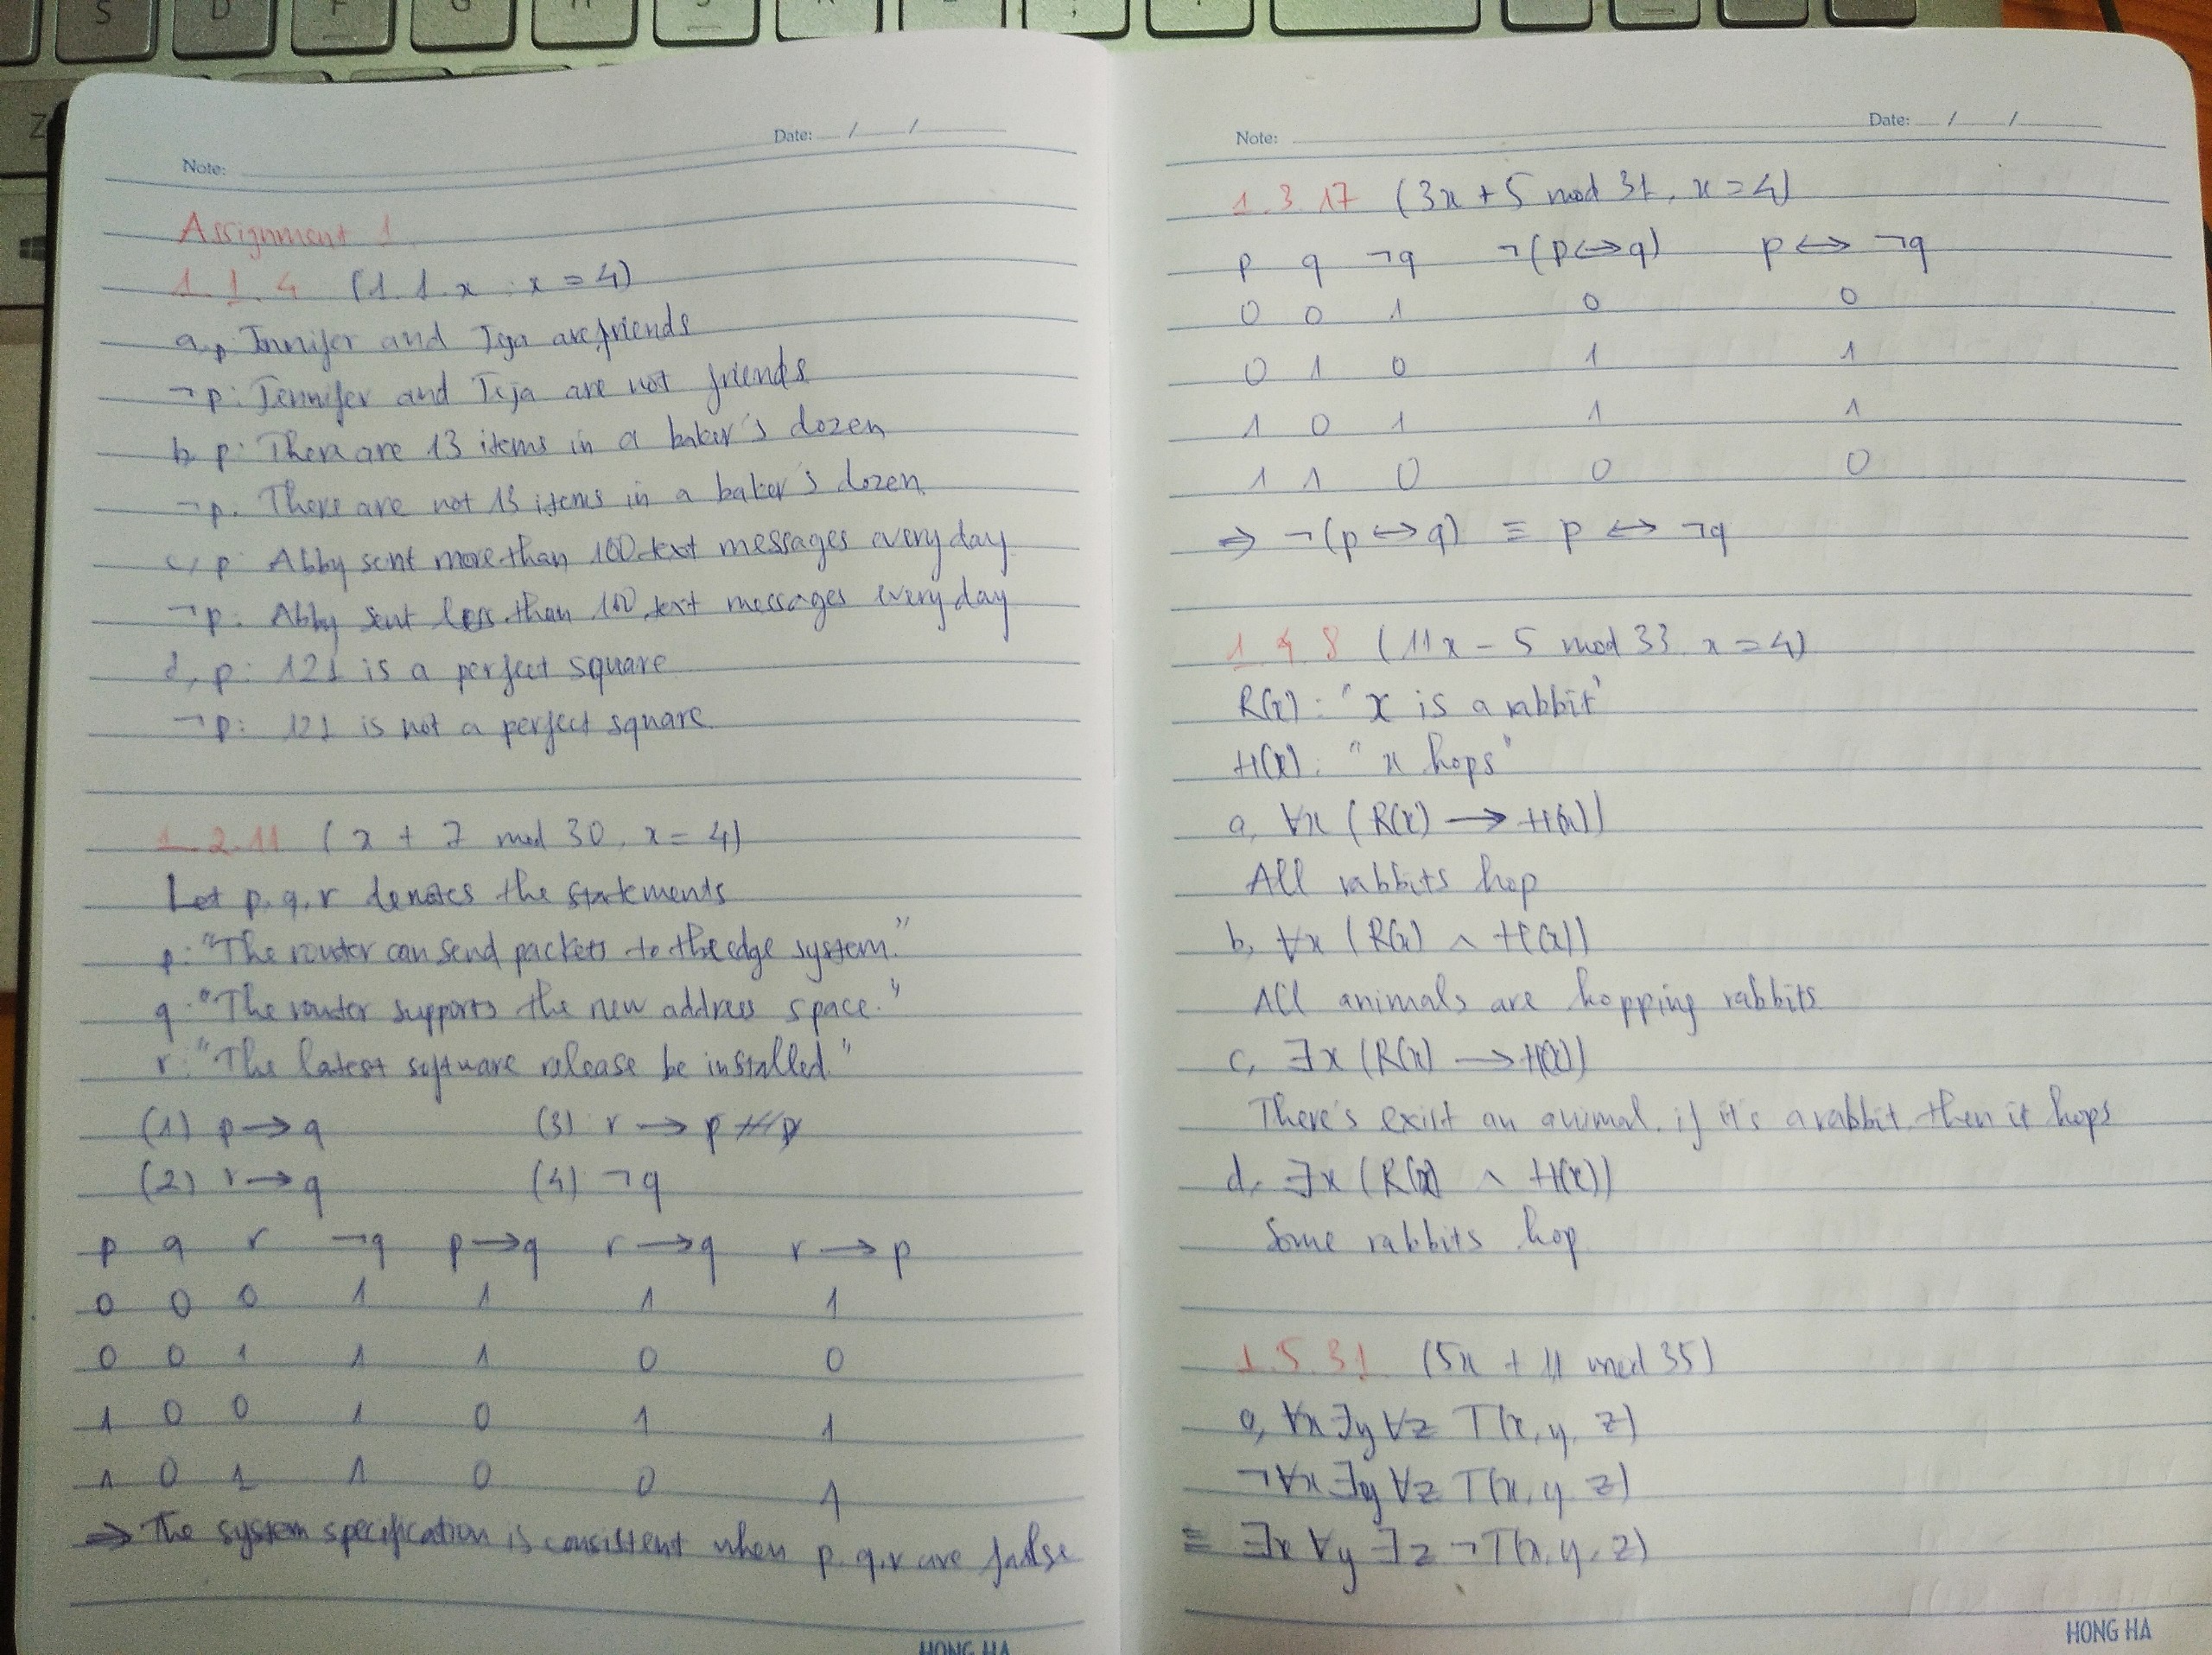 S D F G H J K L ; '
Z
Date: / /
Note:
Assignment 1
1.1.4 (1.1.x , x = 4)
a, p: Jennifer and Teja are friends
¬p: Jennifer and Teja are not friends
b, p: There are 13 items in a baker's dozen
¬p: There are not 13 items in a baker's dozen.
c, p: Abby sent more than 100 text messages every day
¬p: Abby sent less than 100 text messages every day
d, p: 121 is a perfect square
¬p: 121 is not a perfect square
1.2.11 (x + 7 mod 30, x = 4)
Let p, q, r denotes the statements
p: "The router can send packets to the edge system."
q: "The router supports the new address space."
r: "The latest software release be installed."
(1) p → q (3) r → p
(2) r → q (4) ¬q
p q r ¬q p → q r → q r → p
0 0 0 1 1 1 1
0 0 1 1 1 0 0
1 0 0 1 0 1 1
1 0 1 1 0 0 1
⇒ The system specification is consistent when p, q, r are false
HONG HA
Date: / /
Note:
1.3.17 (3x + 5 mod 31, x = 4)
p q ¬q ¬(p ↔ q) p ↔ ¬q
0 0 1 0 0
0 1 0 1 1
1 0 1 1 1
1 1 0 0 0
⇒ ¬(p ↔ q) ≡ p ↔ ¬q
1.4.8 (11x - 5 mod 33, x = 4)
R(x): "x is a rabbit"
H(x): "x hops"
a, ∀x (R(x) → H(x))
All rabbits hop
b, ∀x (R(x) ∧ H(x))
All animals are hopping rabbits
c, ∃x (R(x) → H(x))
There's exist an animal, if it's a rabbit, then it hops
d, ∃x (R(x) ∧ H(x))
Some rabbits hop
1.5.31 (5x + 11 mod 35)
a, ∀x ∃y ∀z T(x, y, z)
¬∀x ∃y ∀z T(x, y, z)
≡ ∃x ∀y ∃z ¬T(x, y, z)
HONG HA